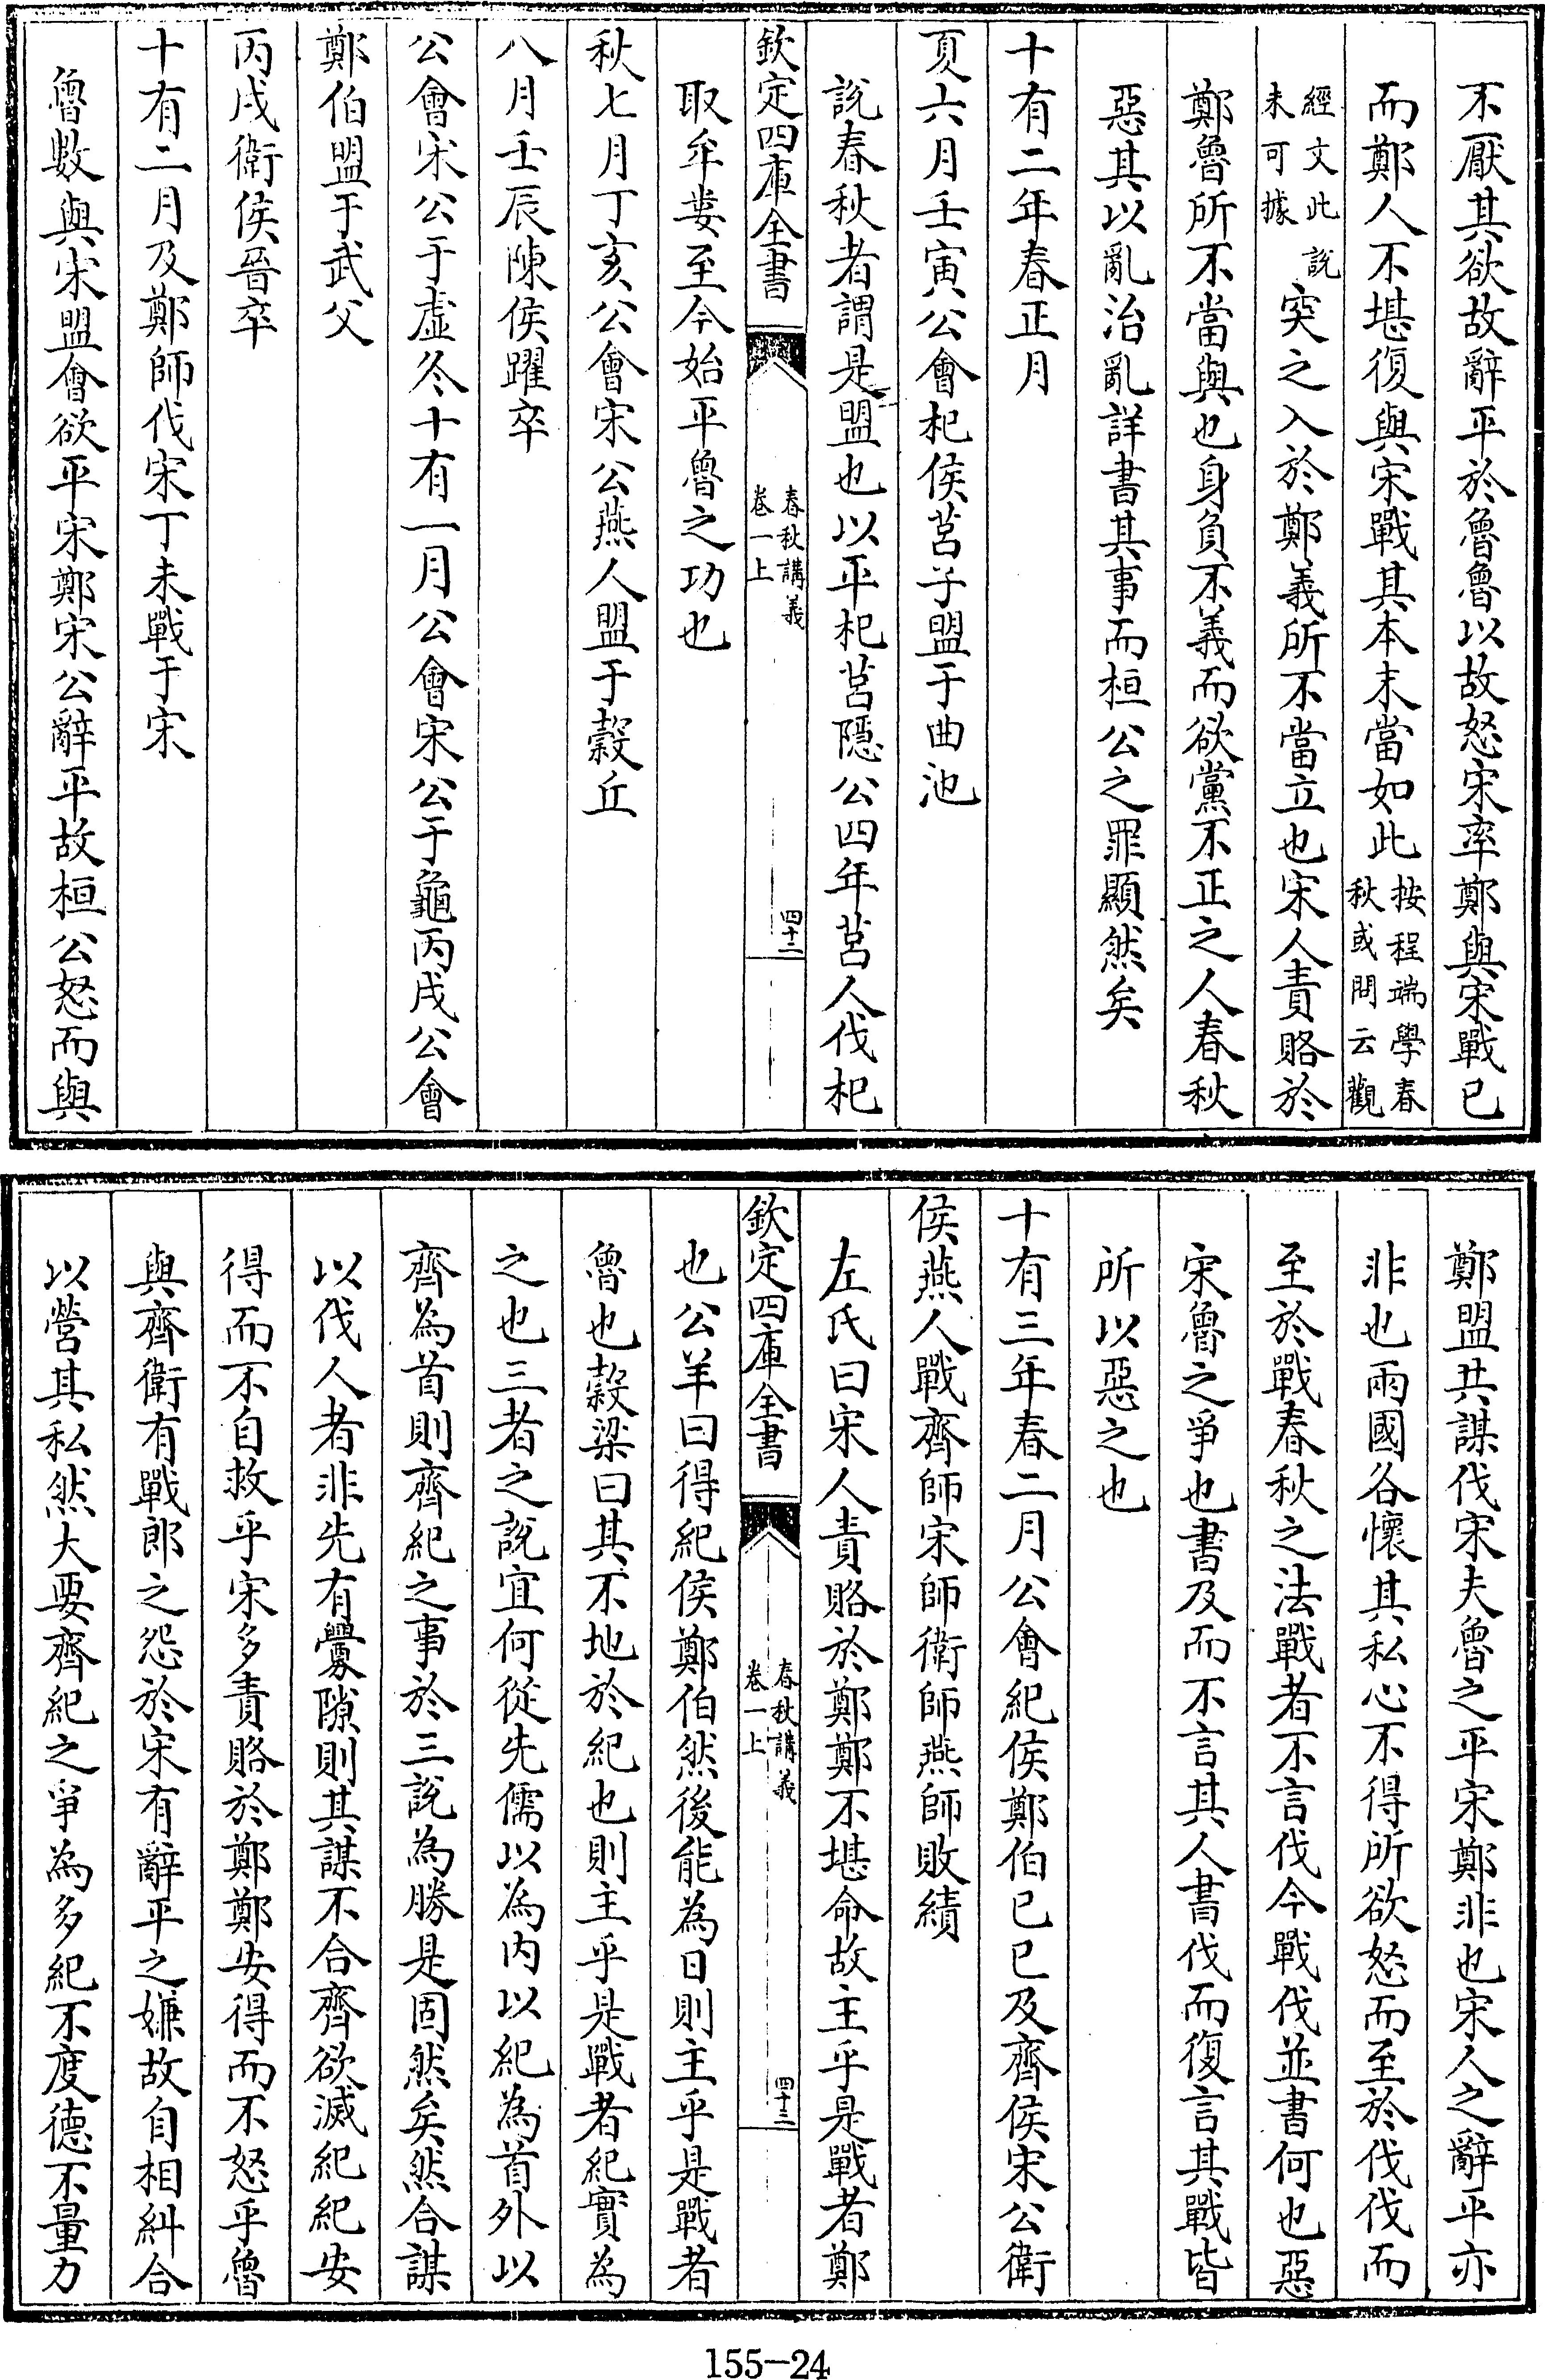 不厭其欲故辭平於魯魯以故怒宋率鄭與宋戰已
而鄭人不堪復與宋戰其本末當如此按程端學春秋或問云觀
經文此說未可據突之入於鄭義所不當立也宋人責賂於
鄭魯所不當與也身負不義而欲黨不正之人春秋
惡其以亂治亂詳書其事而桓公之罪顯然矣
十有二年春正月
夏六月壬寅公會杞侯莒子盟于曲池
說春秋者謂是盟也以平杞莒隱公四年莒人伐杞
欽定四庫全書
春秋講義
卷一上
四十二
取牟婁至今始平魯之功也
秋七月丁亥公會宋公燕人盟于穀丘
八月壬辰陳侯躍卒
公會宋公于虛冬十有一月公會宋公于龜丙戌公會
鄭伯盟于武父
丙戌衛侯晉卒
十有二月及鄭師伐宋丁未戰于宋
魯數與宋盟會欲平宋鄭宋公辭平故桓公怒而與
鄭盟共謀伐宋夫魯之平宋鄭非也宋人之辭平亦
非也兩國各懷其私心不得所欲怒而至於伐伐而
至於戰春秋之法戰者不言伐今戰伐並書何也惡
宋魯之爭也書及而不言其人書伐而復言其戰皆
所以惡之也
十有三年春二月公會紀侯鄭伯己巳及齊侯宋公衛
侯燕人戰齊師宋師衛師燕師敗績
左氏曰宋人責賂於鄭鄭不堪命故主乎是戰者鄭
欽定四庫全書
春秋講義
卷一上
四十三
也公羊曰得紀侯鄭伯然後能為日則主乎是戰者
魯也穀梁曰其不地於紀也則主乎是戰者紀實為
之也三者之說宜何從先儒以為內以紀為首外以
齊為首則齊紀之事於三說為勝是固然矣然合謀
以伐人者非先有釁隙則其謀不合齊欲滅紀紀安
得而不自救乎宋多責賂於鄭鄭安得而不怒乎魯
與齊衛有戰郎之怨於宋有辭平之嫌故自相糾合
以營其私然大要齊紀之爭為多紀不度德不量力
155-24